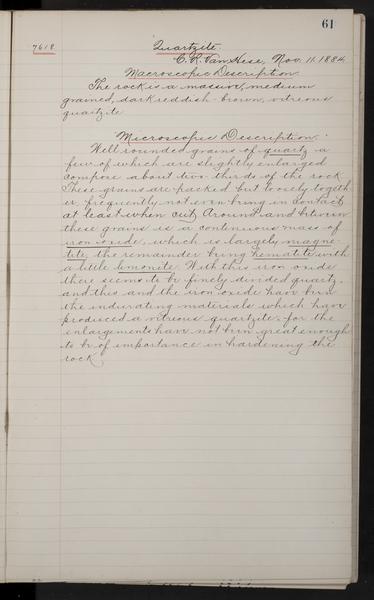 61
7618 Quartzite.
C. R. Van Hise, Nov. 11. 1884
Macroscopic Description.
The rock is a massive, medium
grained, dark reddish-brown, vitreous
quartzite
Microscopic Description.
Well rounded grains of quartz a
few of which are slightly enlarged
compose about two thirds of the rock
These grains are packed but loosely togeth-
er frequently not even being in contact
at least when cut. Around and between
these grains is a continuous mass of
iron oxide, which is largely magne-
tite, the remainder being hematite with
a little limonite. With this iron oxide
there seems to be finely divided quartz
and this and the iron oxide have been
the indurating materials which have
produced a vitreous quartzite, for the
enlargements have not been great enough
to be of importance in hardening the
rock